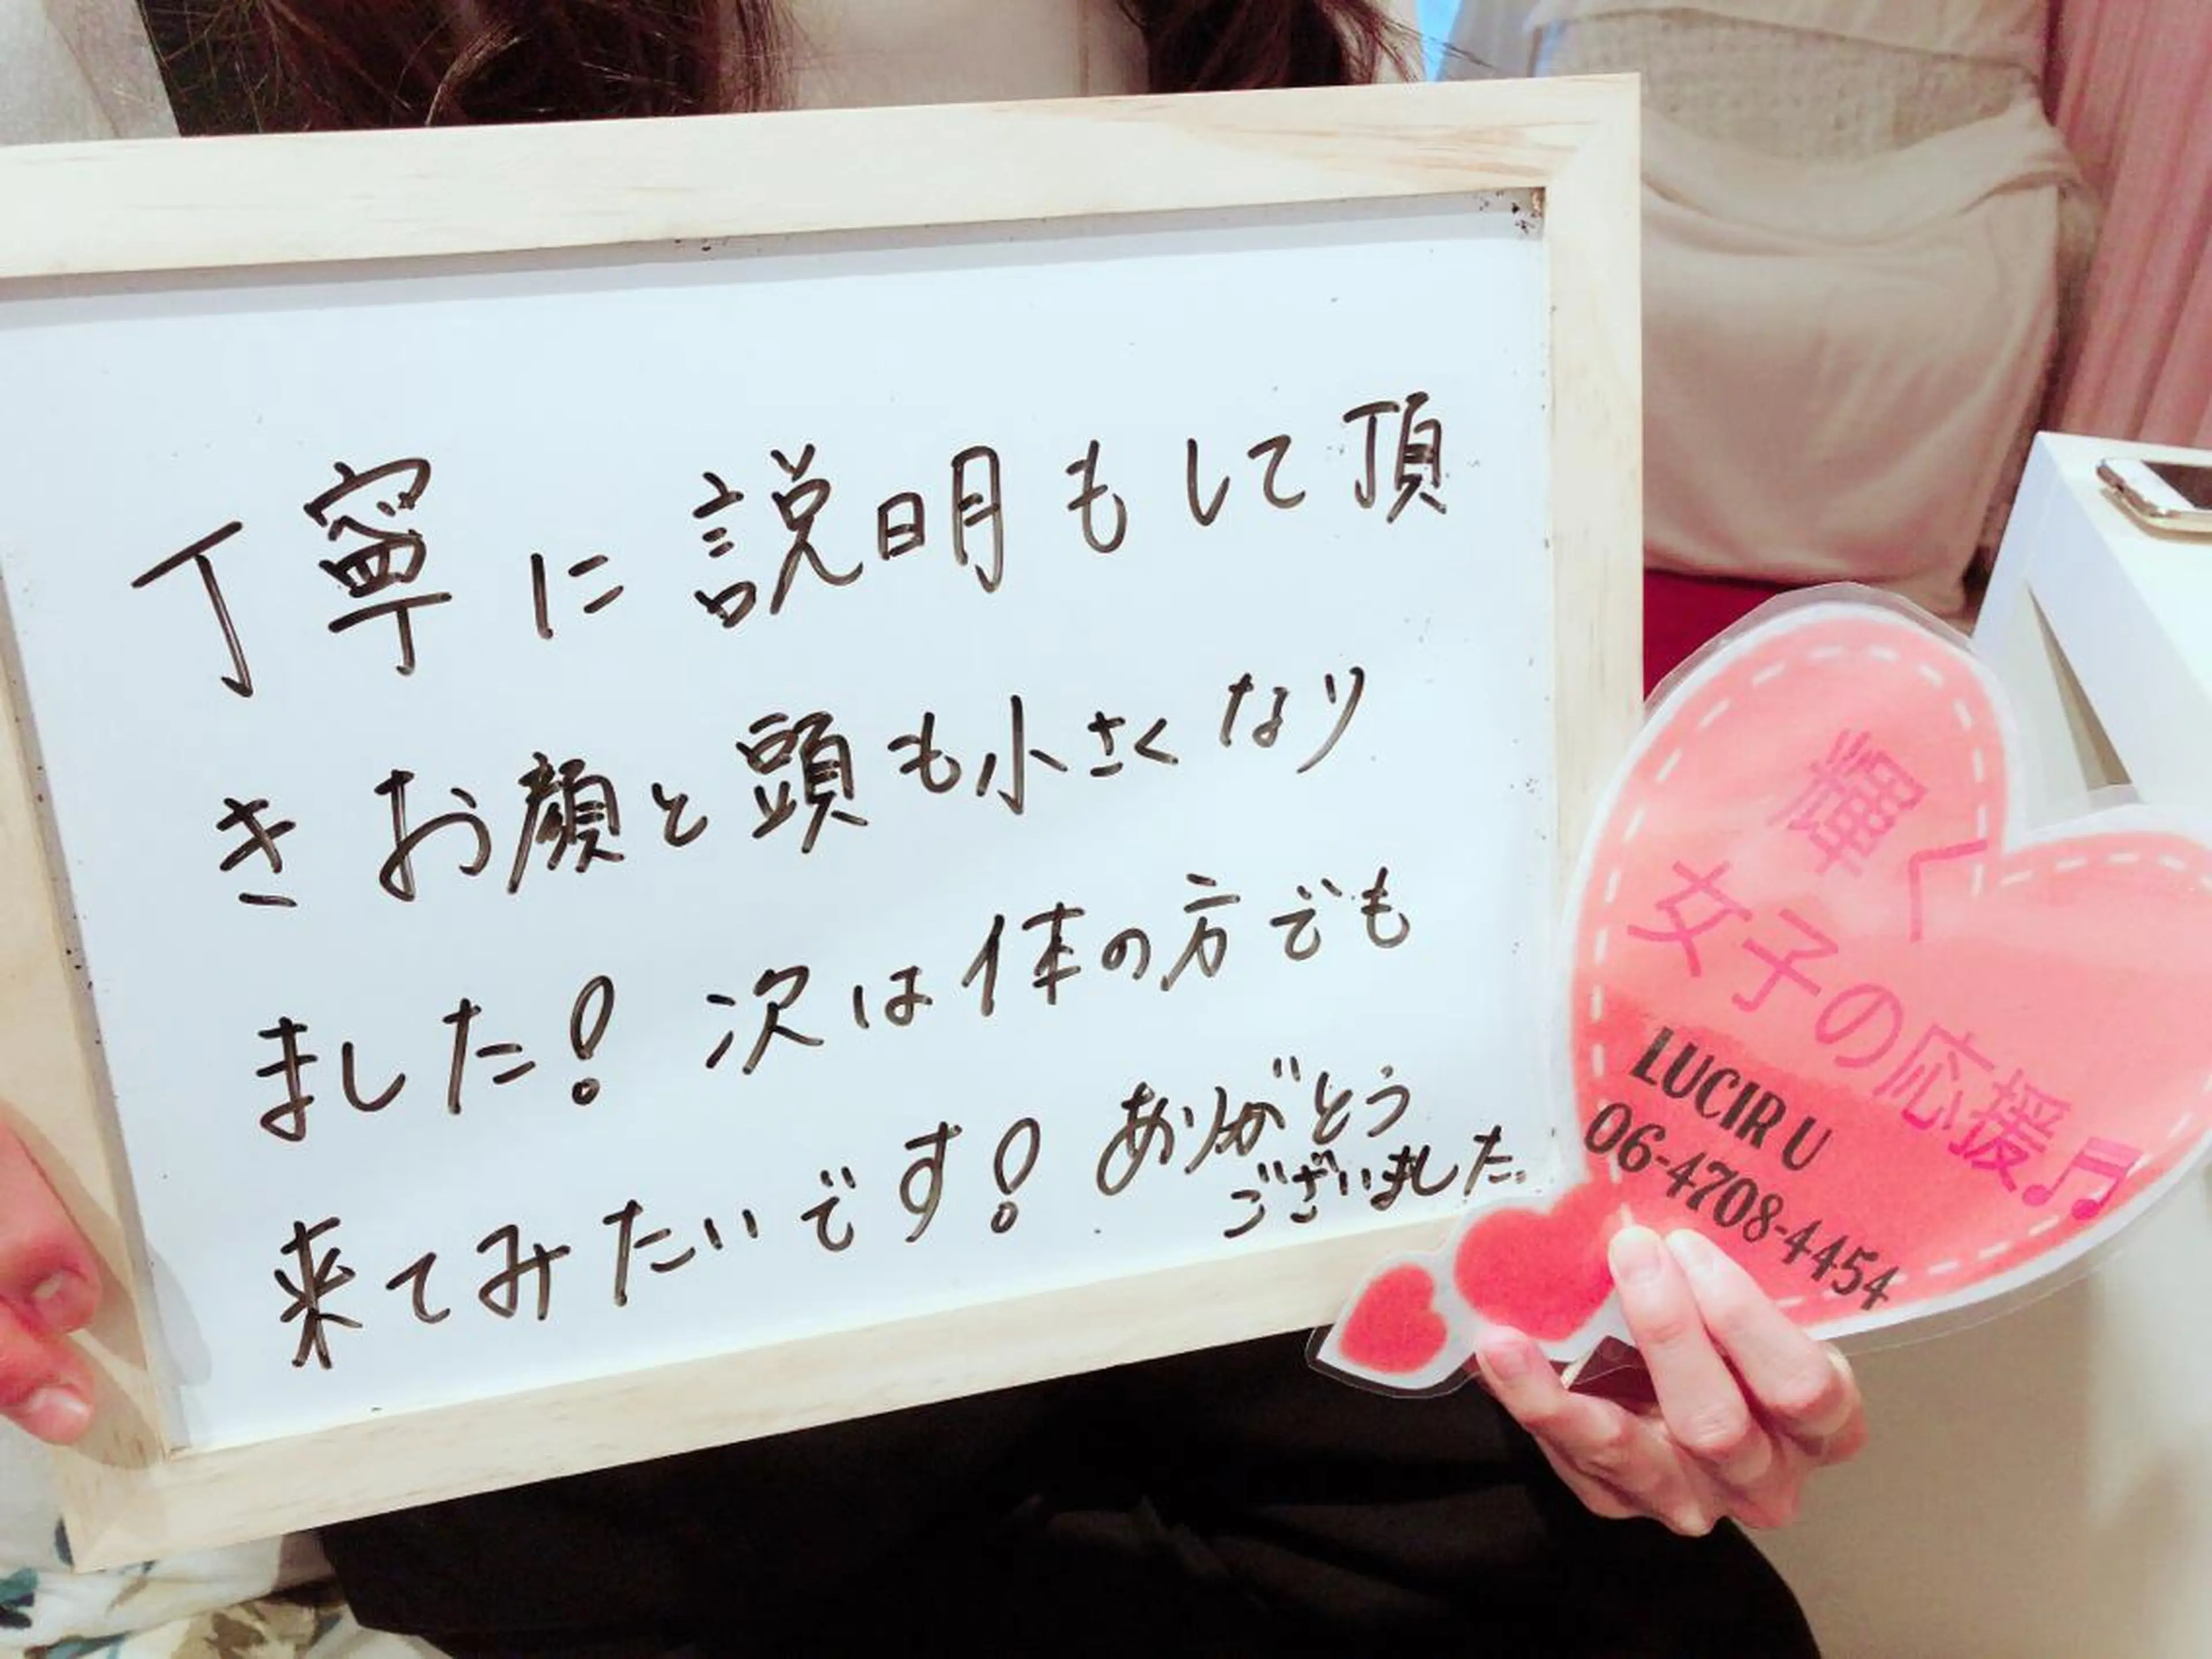 丁寧に説明もして頂
きお顔と頭も小さくなり
ました! 次は体の方でも
来てみたいです! ありがとう
ございました。
輝く
女子の応援♬
LUCIR U
06-4708-4454